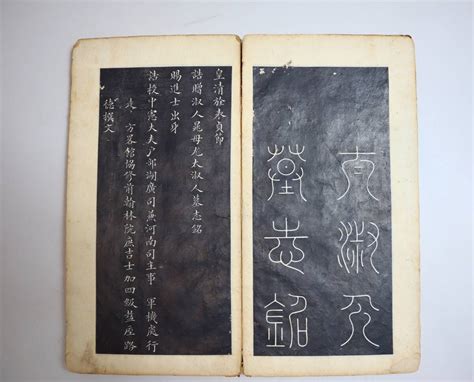 尤淑人
墓志銘
皇清旌表貞節
誥贈淑人晁母尤太淑人墓志銘
賜進士出身
誥授中憲大夫户部湖廣司兼河南司主事 軍機處行
走 方畧館協修前翰林院庶吉士加四級盩厔路
德撰文